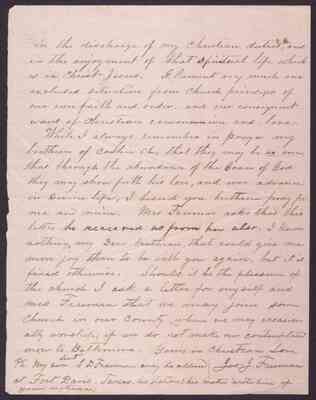 in the discharge of my Christian duties, and
in the enjoyment of that spiritual life which
is in Christ Jesus. I lament very much our
secluded situation from Church privileges of
our own faith and order, and our consequent
want of Christian communion and love.
While I always remember in prayer my
brethren of Ch. that they may be as one,
that through the abundance of the Grace of God
they may show forth his love, and ever advance
in Divine life, I beseech you brethren pray for
me and mine. Mrs Freeman asks that this
letter be received as from her also. I know
nothing, my Dear brethren, that could give me
more joy than to be with you again, but it is
fixed otherwise. Should it be the pleasure of
the church I ask a letter for myself and
Mrs Freeman that we may join some
Church in our County where we may occasion-
ally worship, if we do not make our contemplated
move to Baltimore. Yours in Christian Love
P.S. My son Freeman may be addressed Jos. J. Freeman
at Fort Davis, Texas. he